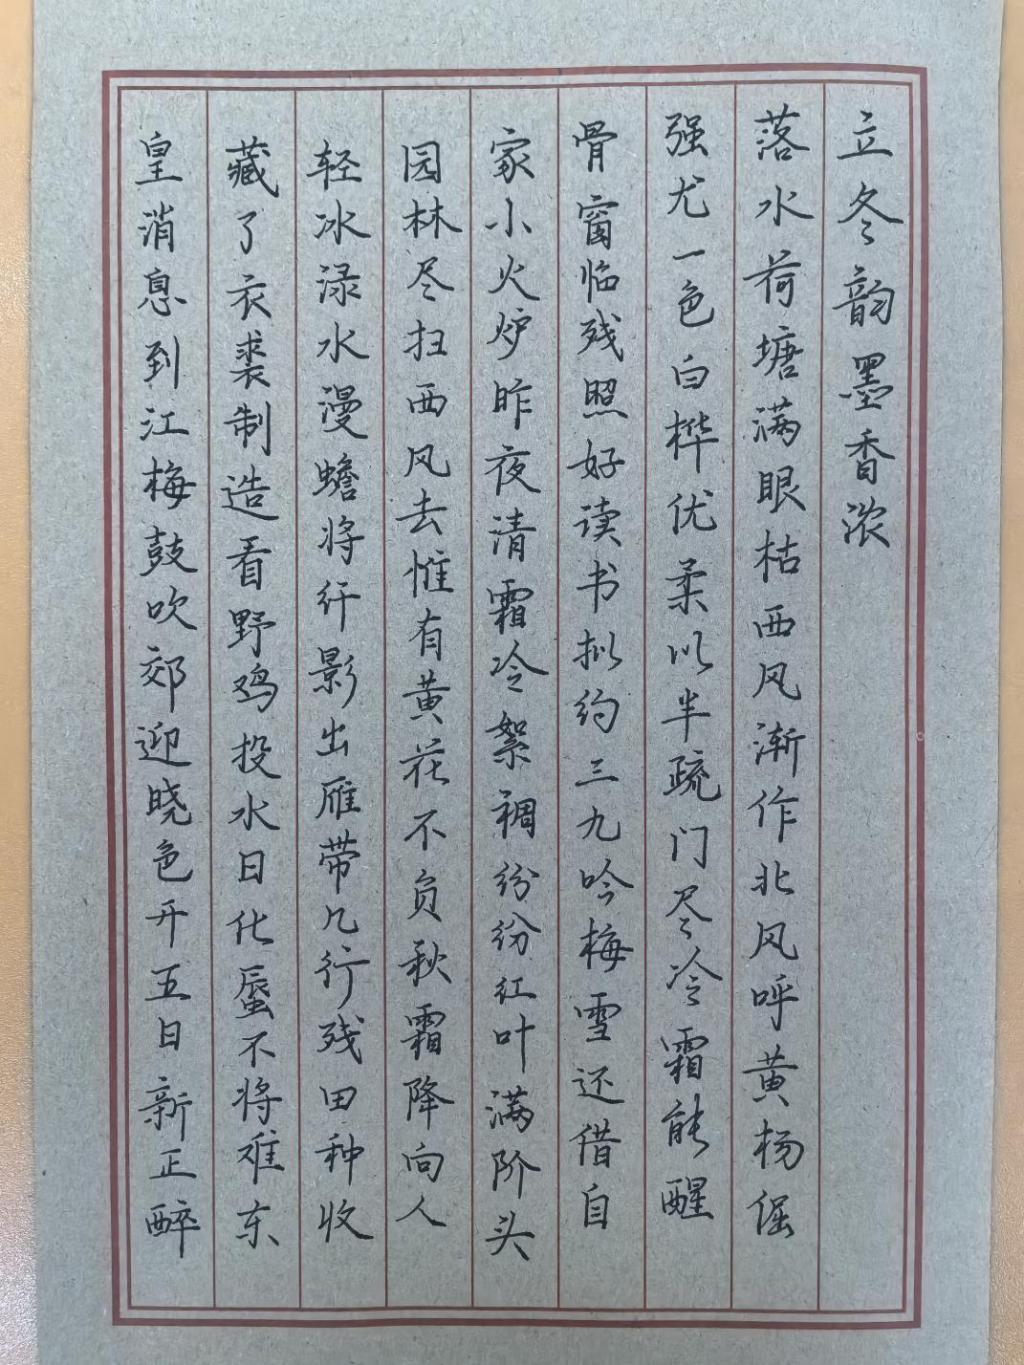 立冬韵墨香浓
落水荷塘满眼枯西风渐作北风呼黄杨倔
强尤一色白桦优柔以半疏门尽冷霜能醒
骨窗临残照好读书拟约三九吟梅雪还借自
家小火炉昨夜清霜冷絮裯纷纷红叶满阶头
园林尽扫西风去惟有黄花不负秋霜降向人
轻冰渌水漫蟾将纤影出雁带几行残田种收
藏了衣裘制造看野鸡投水日化蜃不将难东
皇消息到江梅鼓吹郊迎晓色开五日新正醉